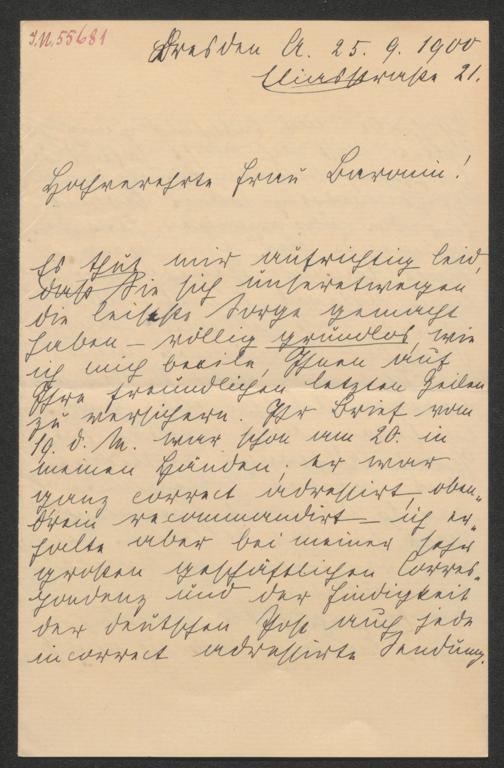 J.N. 55681
Dresden A. 25. 9. 1900
Eliasstraße 21.
Hochverehrte Frau Baronin!
Es thut mir aufrichtig leid,
daß Sie sich unseretwegen
die leiseste Sorge gemacht
haben – völlig grundlos, wie
ich mich beeile, Ihnen auf
Ihre freundlichen letzten Zeilen
zu versichern. Ihr Brief vom
19. d. M. war schon am 20. in
meinen Händen, er war
ganz correct adressirt, oben-
drein recommandirt – ich er-
halte aber bei meiner sehr
großen geschäftlichen Corres-
pondenz und der Findigkeit
der deutschen Post auch jede
incorrect adressirte Sendung.